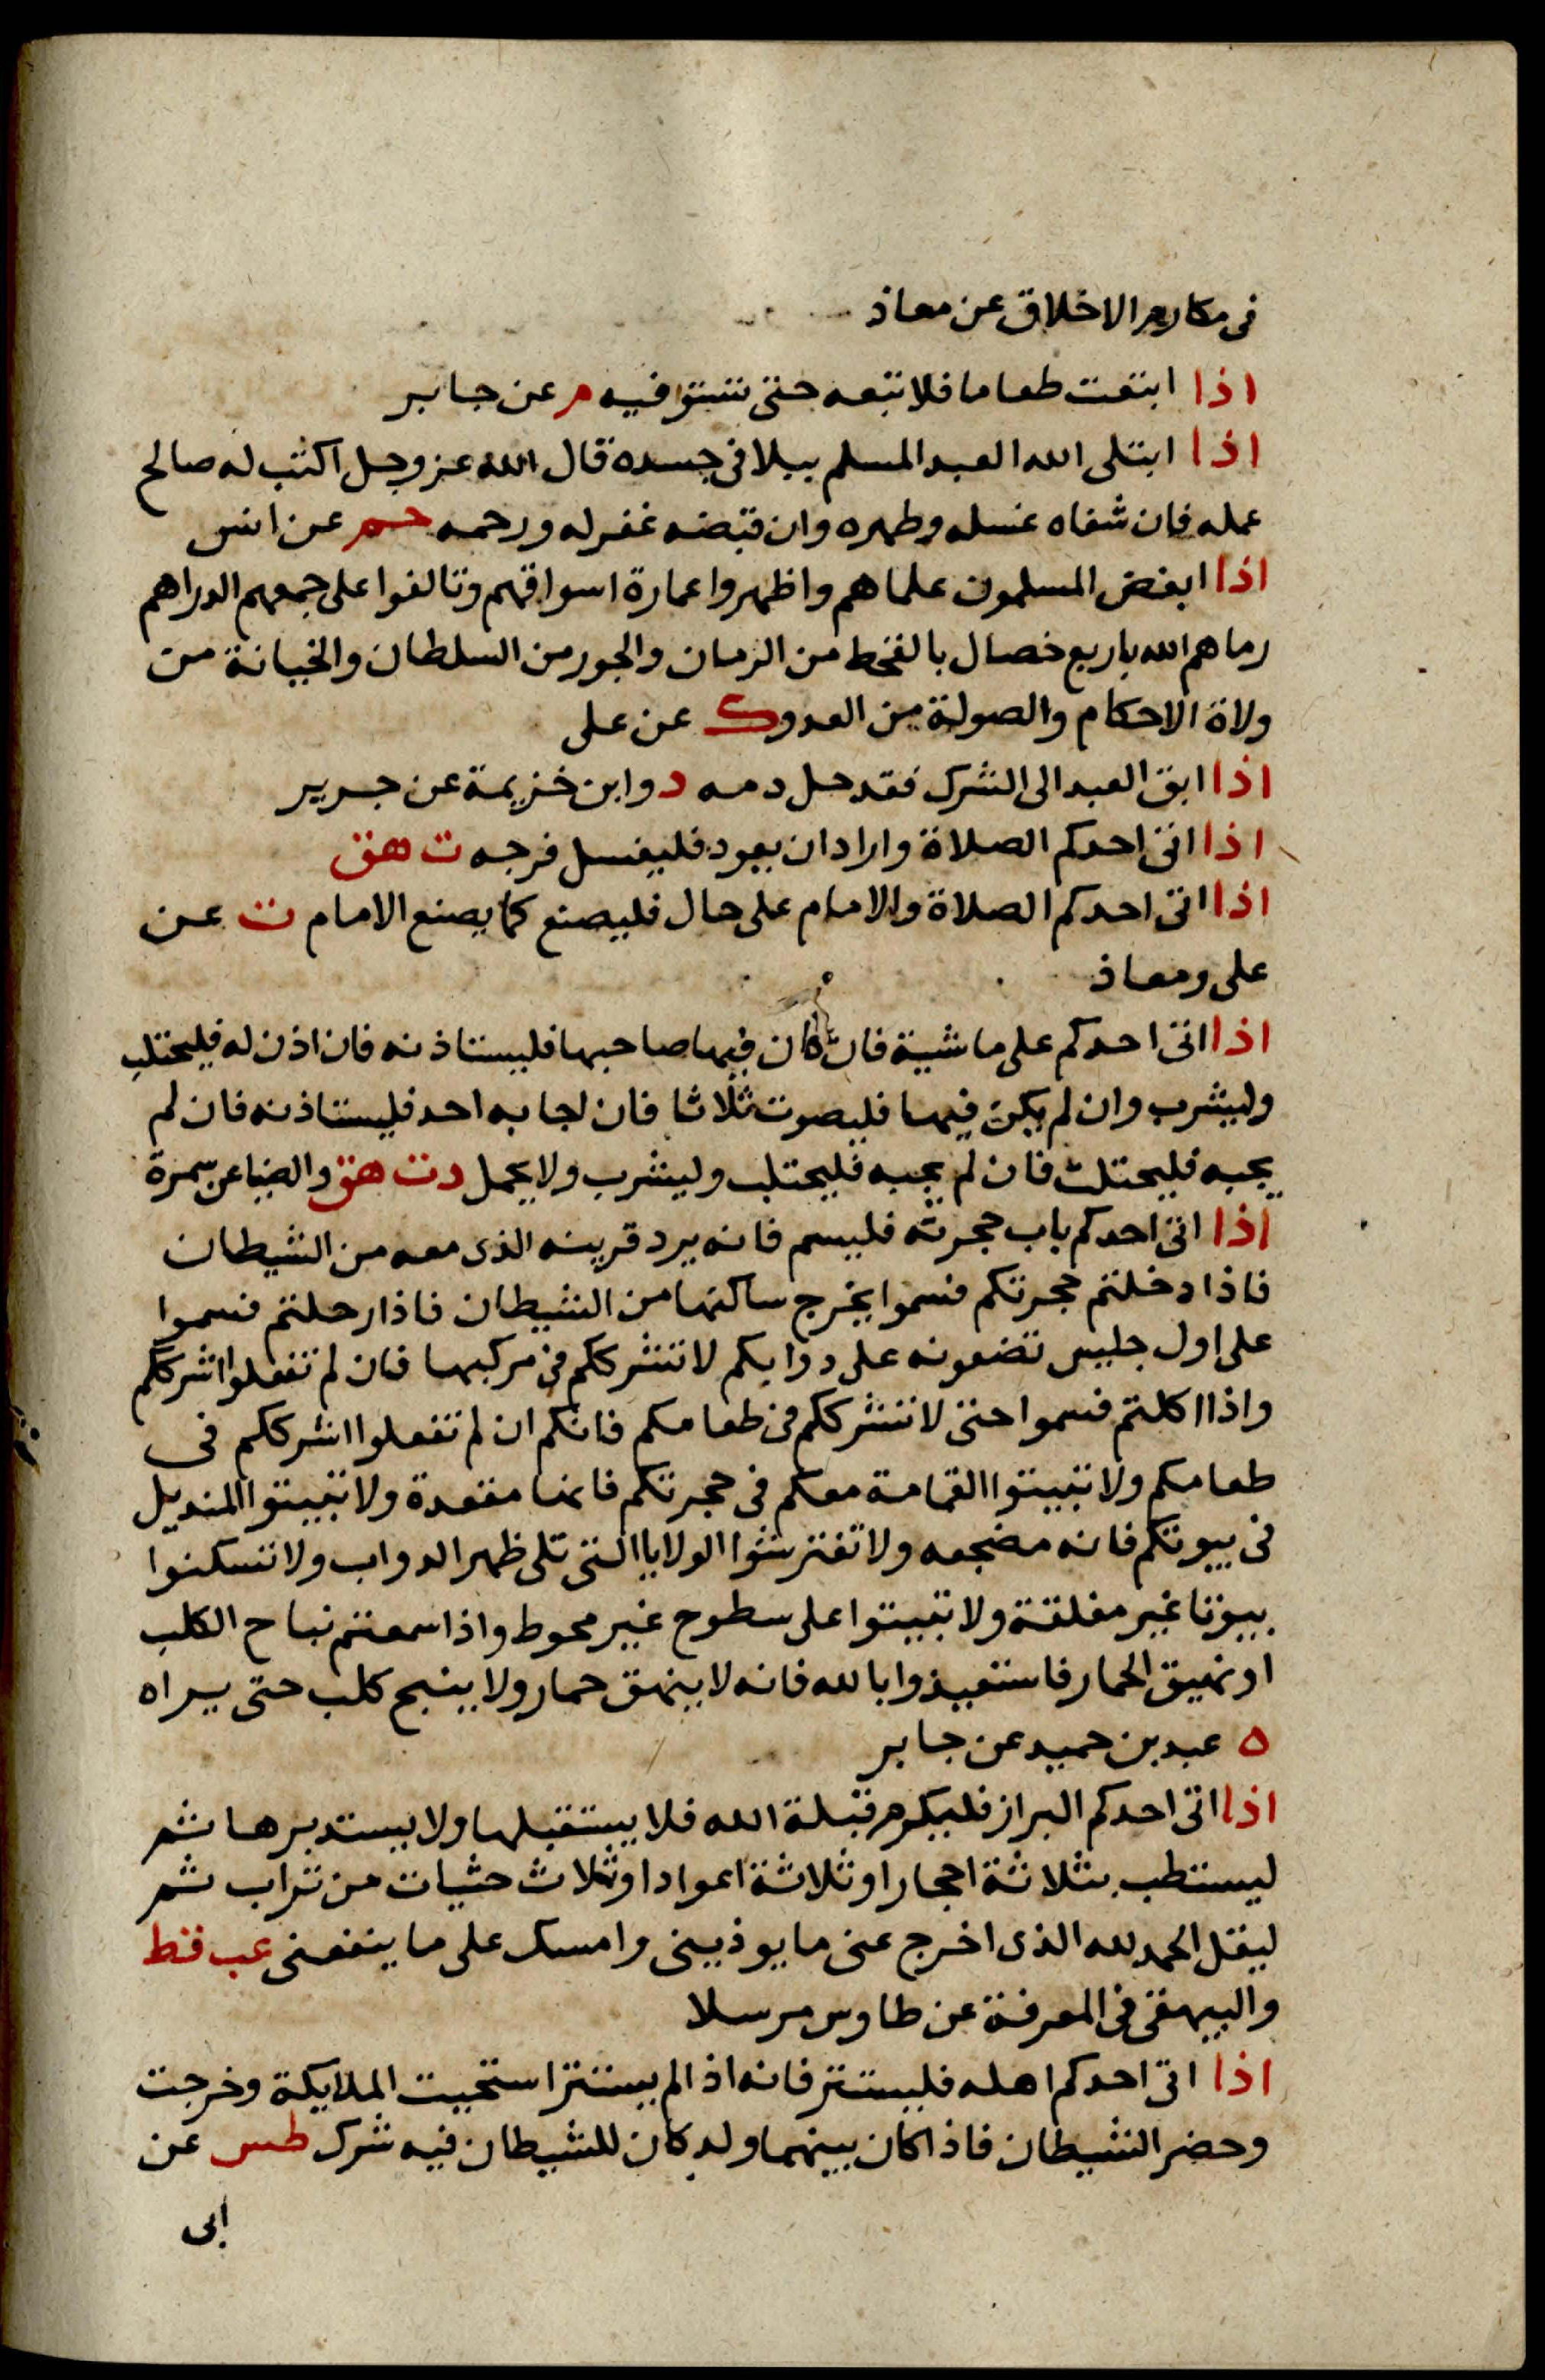 في مكارم الاخلاق عن معاذ
اذا ابتعت طعاما فلا تبعه حتى تستوفيه م عن جابر
اذا ابتلى الله العبد المسلم ببلا في جسده قال الله عز وجل اكتب له صالح
عمله فان شفاه غسله وطهره وان قبضه غفر له ورحمه حم عن انس
اذا ابغض المسلمون علماهم واظهروا عمارة اسواقهم وتالفوا على جمعهم الدراهم
رماهم الله باربع خصال بالقحط من الزمان والجور من السلطان والخيانة من
ولاة الاحكام والصولة من العدو ك عن على
اذا ابق العبد الى الشرك فقد حل دمه د وابن خزيمة عن جرير
اذا اتى احدكم الصلاة واراد ان يعود فليغسل فرجه ت هق
اذا اتى احدكم الصلاة والامام على حال فليصنع كما يصنع الامام ت عن
على ومعاذ
اذا اتى احدكم على ماشية فان كان فيها صاحبها فليستاذنه فان اذن له فليحتلب
وليشرب وان لم يكن فيها فليصوت ثلاثا فان اجابه احد فليستاذنه فان لم
يجبه فليحتلب فان لم يجبه فليحتلب وليشرب ولا يحمل د ت هق والضيا عن سمرة
اذا اتى احدكم باب حجرته فليسم فانه يرد قرينه الذى معه من الشيطان
فاذا دخلتم حجرتكم فسموا يخرج ساكنها من الشيطان فاذا رحلتم فسموا
على اول جليس تضعونه على دوابكم لا تشرككم في مركبها فان لم تفعلوا اشرككم
واذا اكلتم فسموا حتى لا تشرككم في طعامكم فانكم ان لم تفعلوا اشرككم في
طعامكم ولا تبيتوا القمامة معكم في حجرتكم فانها مقعدة ولا تبيتوا المنديل
في بيوتكم فانه مضجعه ولا تفترشوا الولايا التى تلى ظهر الدواب ولا تسكنوا
بيوتا غير مغلقة ولا تبيتوا على سطوح غير محوط واذا سمعتم نباح الكلب
او نهيق الحمار فاستعيذوا بالله فانه لا ينهق حمار ولا ينبح كلب حتى يراه
ه عبد بن حميد عن جابر
اذا اتى احدكم البراز فليكرم قبلة الله فلا يستقبلها ولا يستدبرها ثم
ليستطب بثلاثة احجار او ثلاثة اعواد او ثلاث حثيات من تراب ثم
ليقل الحمد لله الذى اخرج عنى ما يوذيني وامسك على ما ينفعنى عب قط
والبيهقى في المعرفة عن طاوس مرسلا
اذا اتى احدكم اهله فليستتر فانه اذا لم يستتر استحيت الملايكة وخرجت
وحضر الشيطان فاذا كان بينهما ولد كان للشيطان فيه شرك طس عن
ابى